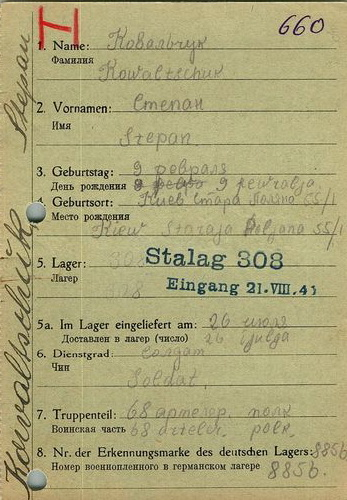 660
T
Kowaltschuk Stepan
1. Name: Ковальчук
Фамилия
Kowaltschuk
2. Vornamen: Степан
Имя
Stepan
3. Geburtstag: 9 февраля
День рождения 9 февра 9 fewralja
4. Geburtsort: Киев Стара Поляна 55/1
Место рождения
Kiew Staraja Poljana 55/1
5. Lager: 308
Лагер 308
Stalag 308
Eingang 21.VIII.41
5a. Im Lager eingeliefert am: 26 июля
Доставлен в лагер (число) 26 ijulja
6. Dienstgrad: Солдат
Чин
Soldat.
7. Truppenteil: 68 артелер. полк
Воинская часть 68 arteler. polk.
8. Nr. der Erkennungsmarke des deutschen Lagers: 8856
Номер военнопленного в германском лагере 8856.